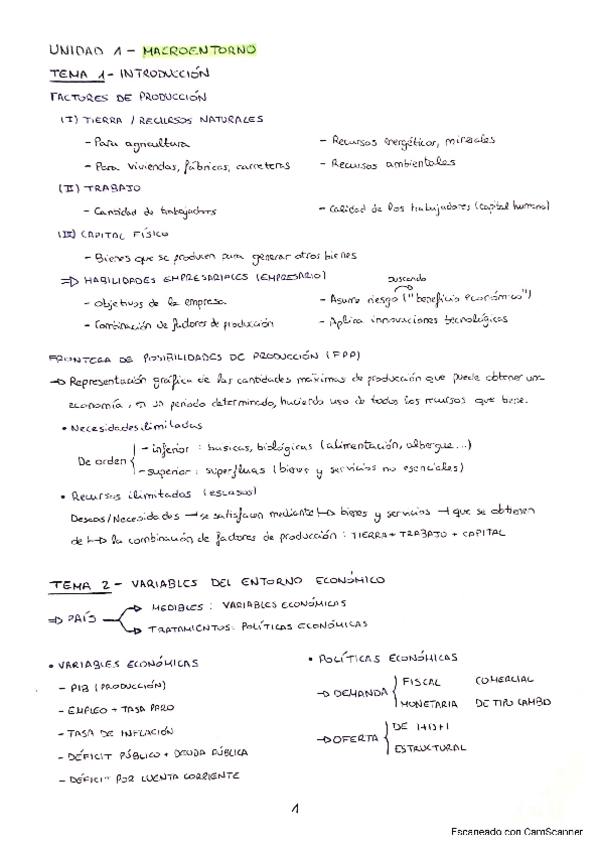 UNIDAD 1 - MACROENTORNO
TEMA 1 - INTRODUCCIÓN
FACTORES DE PRODUCCIÓN
(I) TIERRA / RECURSOS NATURALES
- Para agricultura
- Recursos energéticos, minerales
- Para viviendas, fábricas, carreteras
- Recursos ambientales
(II) TRABAJO
- Cantidad de trabajadores
- Calidad de los trabajadores (capital humano)
(III) CAPITAL FÍSICO
- Bienes que se producen para generar otros bienes
⇒ HABILIDADES EMPRESARIALES (EMPRESARIO)
buscando
- Objetivos de la empresa
- Asume riesgo ("beneficio económico")
- Combinación de factores de producción
- Aplica innovaciones tecnológicas
FRONTERA DE POSIBILIDADES DE PRODUCCIÓN (FPP)
→ Representación gráfica de las cantidades máximas de producción que puede obtener una
economía, en un periodo determinado, haciendo uso de todos los recursos que tiene.
• Necesidades ilimitadas
De orden
- inferior: básicas, biológicas (alimentación, albergue...)
- superior: superfluas (bienes y servicios no esenciales)
• Recursos ilimitados (escasos)
Deseos/Necesidades → se satisfacen mediante → bienes y servicios → que se obtienen
de → la combinación de factores de producción: TIERRA + TRABAJO + CAPITAL
TEMA 2 - VARIABLES DEL ENTORNO ECONÓMICO
⇒ PAÍS
→ MEDIBLES: VARIABLES ECONÓMICAS
→ TRATAMIENTOS: POLÍTICAS ECONÓMICAS
• VARIABLES ECONÓMICAS
- PIB (PRODUCCIÓN)
- EMPLEO + TASA PARO
- TASA DE INFLACIÓN
- DÉFICIT PÚBLICO + DEUDA PÚBLICA
- DÉFICIT POR CUENTA CORRIENTE
• POLÍTICAS ECONÓMICAS
→ DEMANDA
FISCAL COMERCIAL
MONETARIA DE TIPO CAMBIO
→ OFERTA
DE I+D+I
ESTRUCTURAL
1
Escaneado con CamScanner